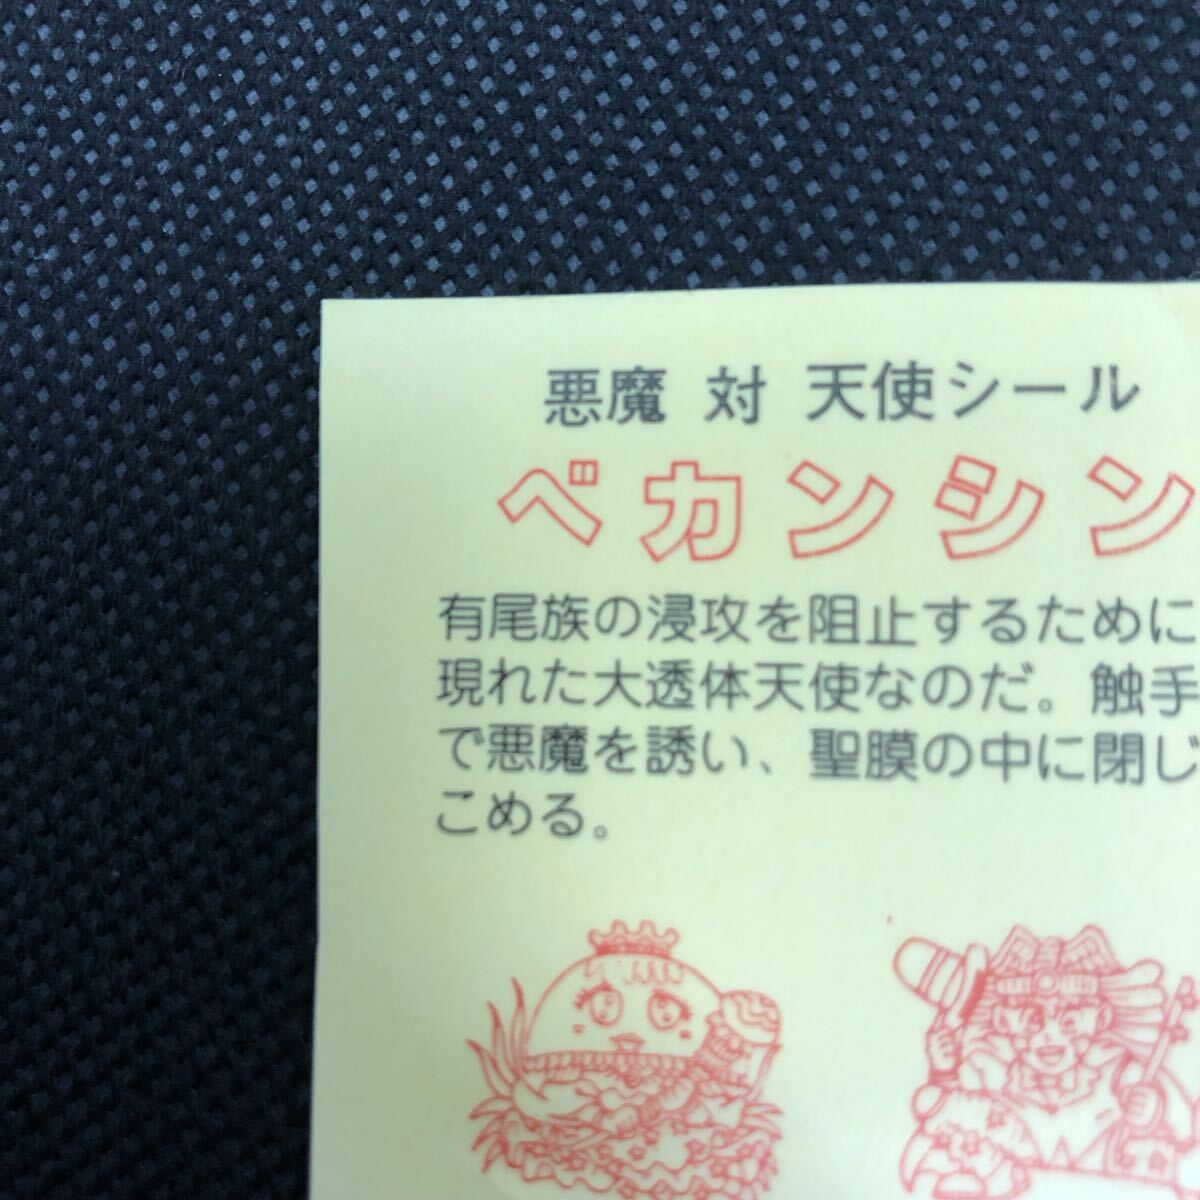 悪魔 対 天使シール
ベカンシン
有尾族の浸攻を阻止するために
現れた大透体天使なのだ。触手
で悪魔を誘い、聖膜の中に閉じ
こめる。